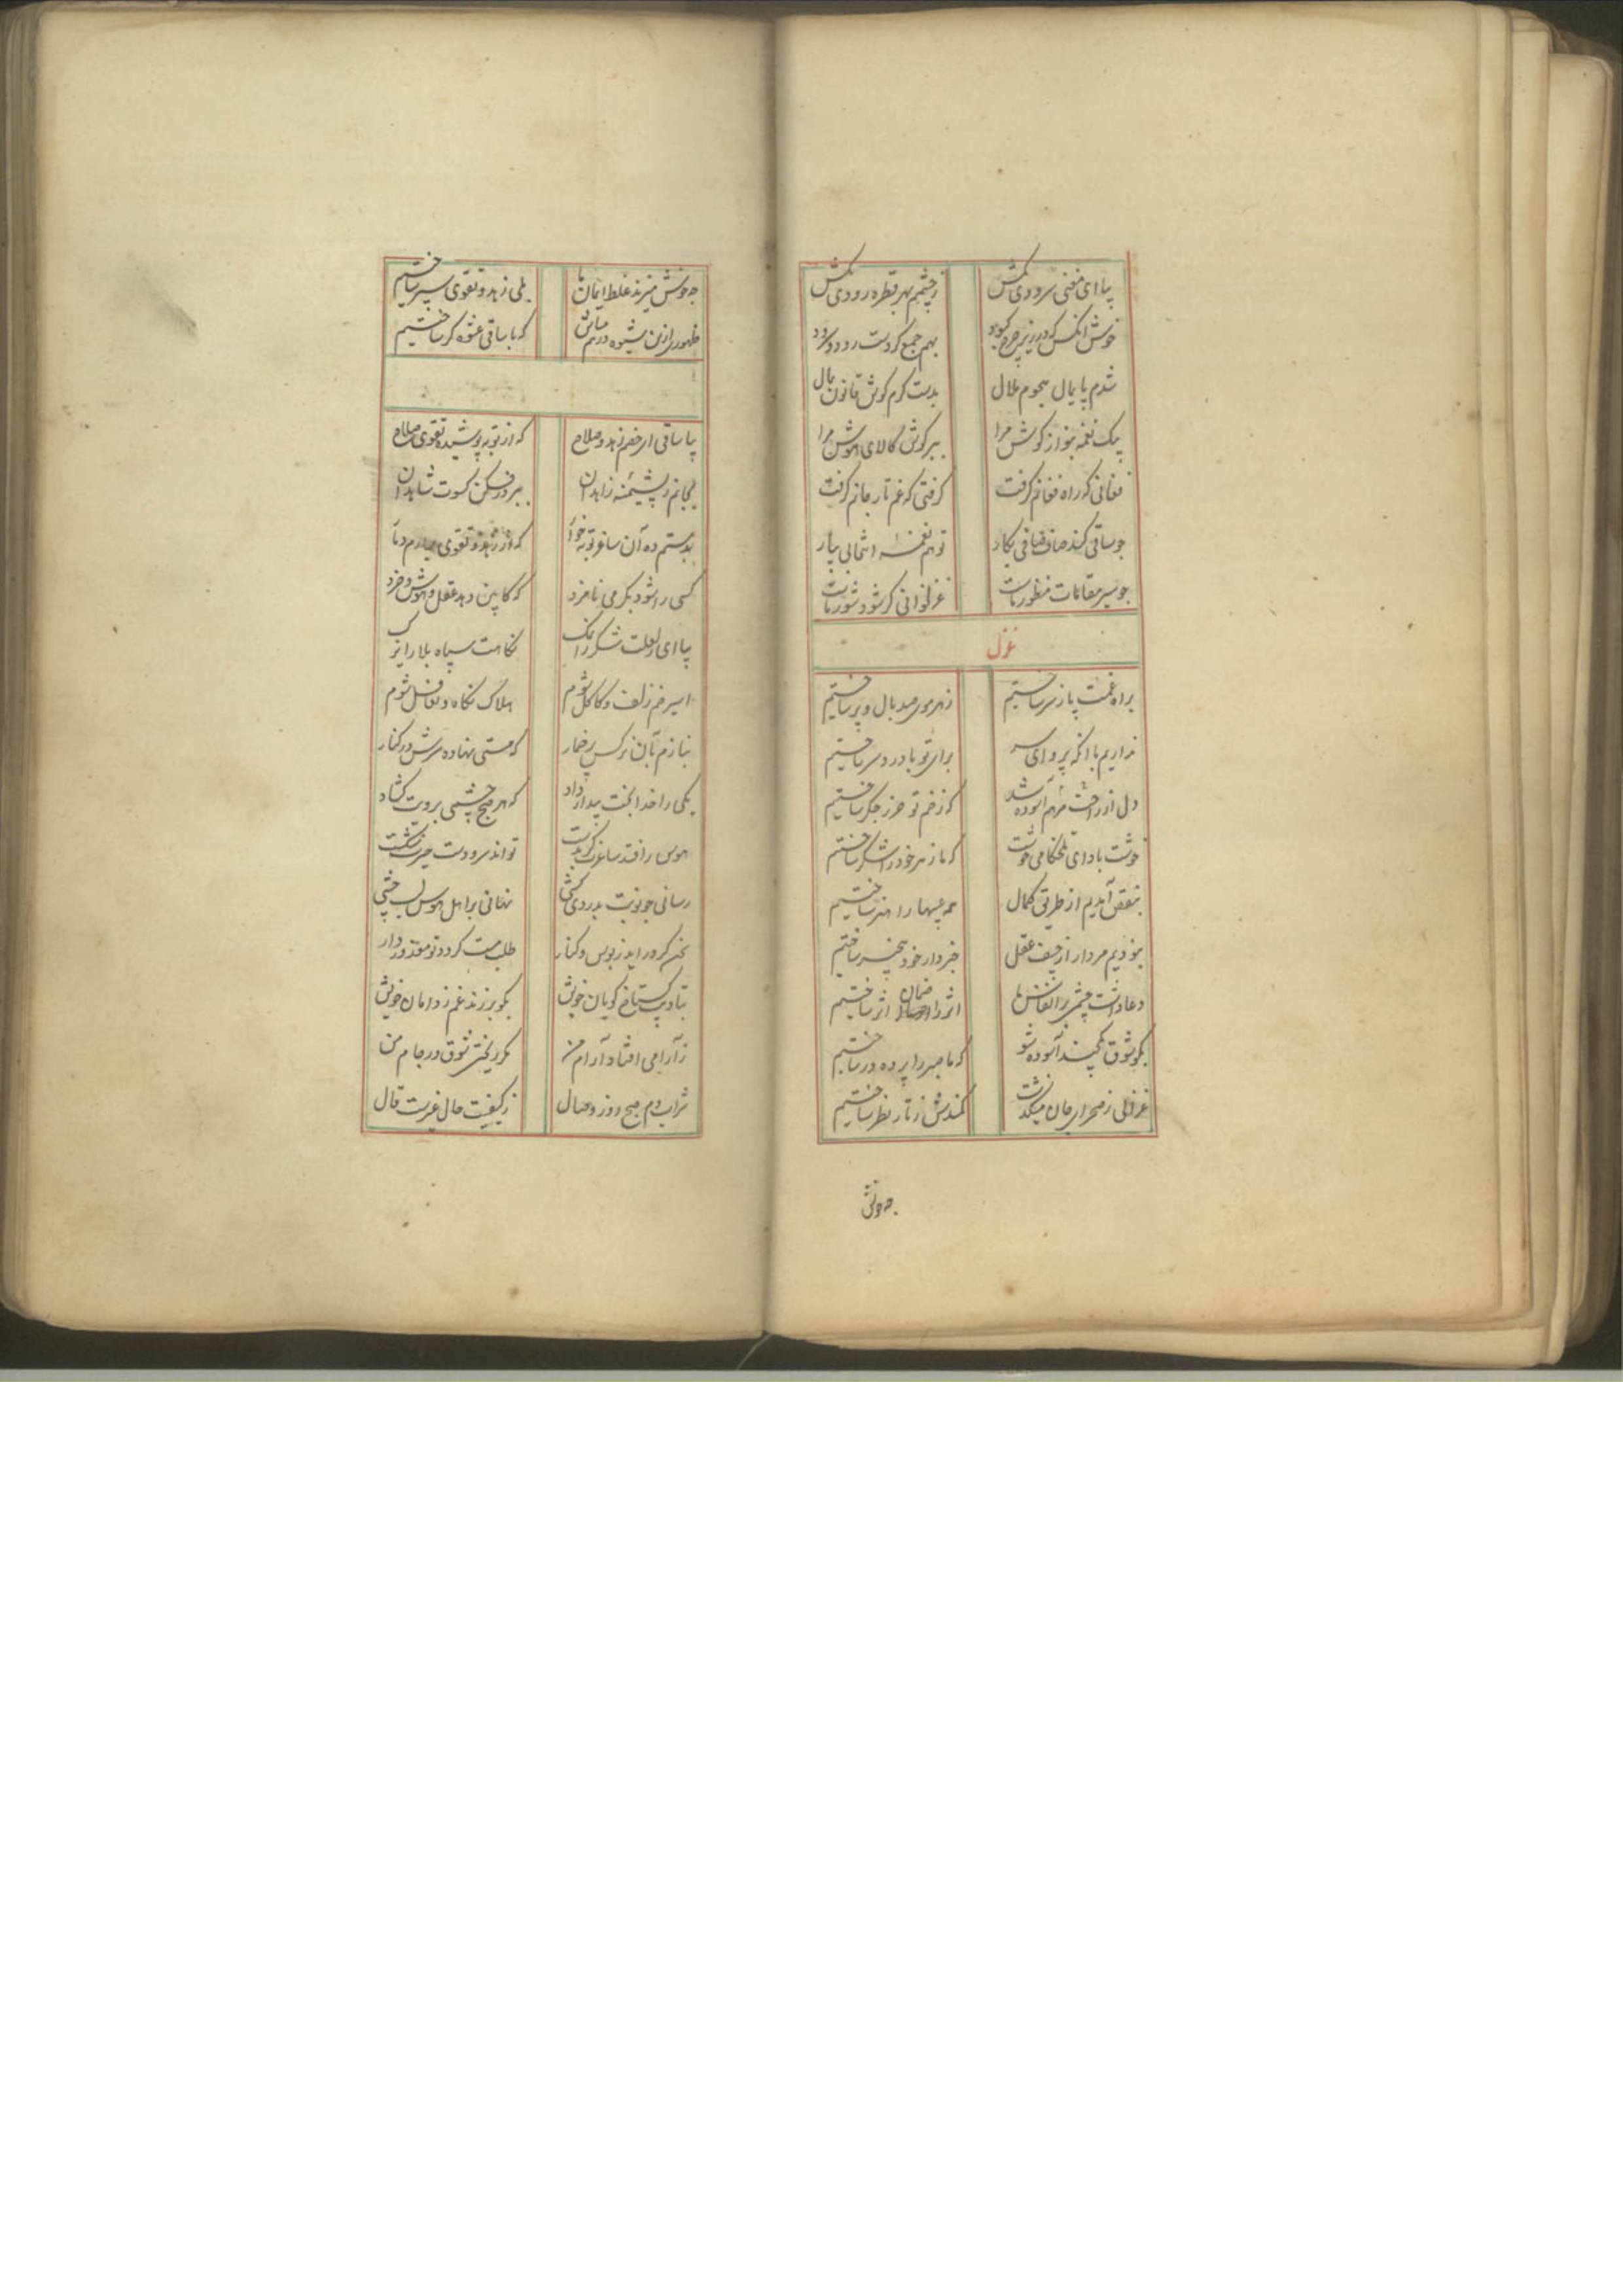 بیا ای مغنی سرودی بکش زچشمم بهر قطره رودی بکش
خوش آنکس که در زیر چرخ کبود بهم جمع کردست رود و سرود
شدم پایمال هجوم ملال بدست کرم کوش قانون بمال
بیک نغمه بنواز کوش مرا ببر کوش کالای هوش مرا
فغانی که راه فغانم کرفت کرفتی که غم تار جانم کرفت
چو ساقی کند صاف صافی بکار تو هم نغمه انتخابی بیار
چو سیر مقامات منظور ماست غزلخوانی کر شود شور ماست
غزل
براه غمت پا ز سر ساختیم ز هر موی صد بال و پر ساختیم
نداریم با آنکه پروای سر برای تو با درد سر ساختیم
دل از راحت مرهم آسوده شد که زخم تو حرز جکر ساختیم
خوشت باد ای تلخکامی خوشت که ما زهر خود را شکر ساختیم
بنقص آمدیم از طریق کمال همه عیبها را هنر ساختیم
نبودیم مردار از حیف عقل خبردار خود بیخبر ساختیم
دعا داشت چشمی بر انفاس ما اثر را ضمان اثر ساختیم
بکو شوق بکچند آسوده شو که ما صبر را پرده در ساختیم
غزالی ز صحرای جان میکذشت کمندش ز تار نظر ساختیم
چه خوش
چه خوش میزند غلط ایمان ما بلی زهد و تقوی سپر ساختیم
ظهوری ازین شیوه درهم مباش که با ساقی عشوه کر ساختیم
بیا ساقی ای خصم زهد و صلاح که از توبه پوشیده تقوی سلاح
بجانم ز پشمینه زاهدان ببر در فکن کسوت شاهدان
بدستم ده آن ساغر توبه خوار که از زهد و تقوی برآرم دمار
کسی را شود بکر می نامزد که کابین دهد عقل و هوش و خرد
بیا ای ز لعلت شکر را نمک نکاهت سپاه بلا را یزک
اسیر خم زلف و کاکل شوم هلاک نکاه و تغافل شوم
بنازم بآن نرکس پرخمار که مستی نهاده سرش در کنار
یکی را خدا بخت بیدار داد که هر صبح چشمی برویت کشاد
هوس را فتد ساغر کر بدست تواند سر و دست حیرت شکست
رسانی چو نوبت بدردی کشی نهانی بر اهل هوس لب چشی
سخن کر در آید ز بوس و کنار طلب مست کردد تو معذور دار
بتاب ز کستاخ کویان خویش بکو برزند غم ز دامان خویش
ز آرامی افتاد آرام من مکر ریختی شوق در جام من
شراب دم صبح روز وصال ز کیفیت حال غیرت قال